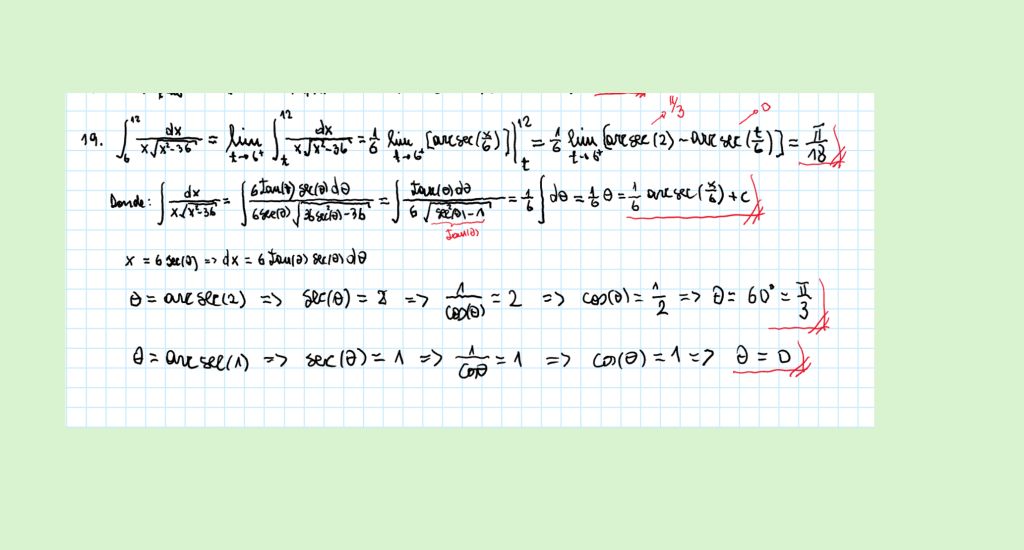 19. ∫_6^12 dx / (x√(x²-36)) = lim_{t→6⁺} ∫_t^12 dx / (x√(x²-36)) = 1/6 lim_{t→6⁺} [arcsec(x/6)]|_t^12 = 1/6 lim_{t→6⁺} [arcsec(2) - arcsec(t/6)] = π/18
π/3
0
Donde: ∫ dx / (x√(x²-36)) = ∫ 6tan(θ) sec(θ) dθ / (6sec(θ) √(36sec²(θ)-36)) = ∫ tan(θ) dθ / (6√(sec²(θ)-1)) = 1/6 ∫ dθ = 1/6 θ = 1/6 arcsec(x/6) + c
tan(θ)
x = 6 sec(θ) => dx = 6 tan(θ) sec(θ) dθ
θ = arcsec(2) => sec(θ) = 2 => 1/cos(θ) = 2 => cos(θ) = 1/2 => θ = 60° = π/3
θ = arcsec(1) => sec(θ) = 1 => 1/cosθ = 1 => cos(θ) = 1 => θ = 0